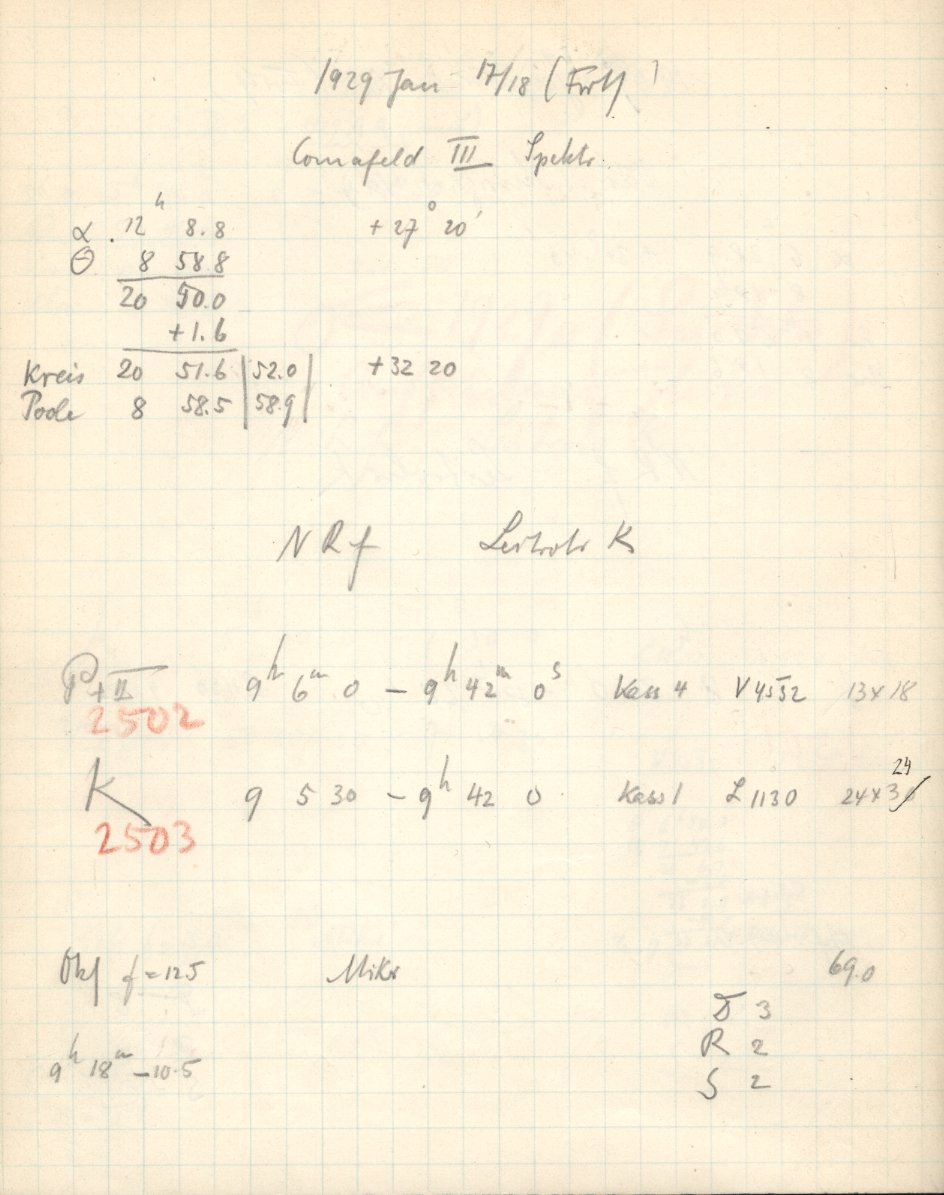 1929 Jan 17/18
Comafeld III Spektr.
α 12h 8.8 +27° 20′
Θ 8 58.8
20 50.0
+1.6
Kreis 20 51.6 | 52.0 | +32 20
Poole 8 58.5 | 58.9 |
N R f Leitrohr K
P+II 9h 6m 0 – 9h 42m 0s Kass 4 V 4532 13 x 18
2502
K 9 5 30 – 9h 42 0 Kass 1 L 1130 24 x 24
2503
f = 12.5 Mikr 69.0
3
R 2
9h 18m – 10.5
S 2